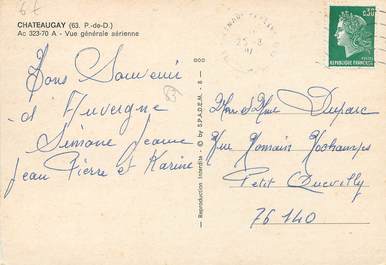 67
CHATEAUGAY (63. P.-de-D.)
Ac 323-70 A - Vue générale aérienne
Bons Souvenir
d'Auvergne
Simone Jeanne
Jean Pierre et Karine
63
000
Reproduction Interdite - © by S.P.A.D.E.M. - 8 -
25-8
0,30
POSTES
REPUBLIQUE FRANÇAISE
Mr et Mme Duparc
Rue Romain
Petit Quevilly
76140